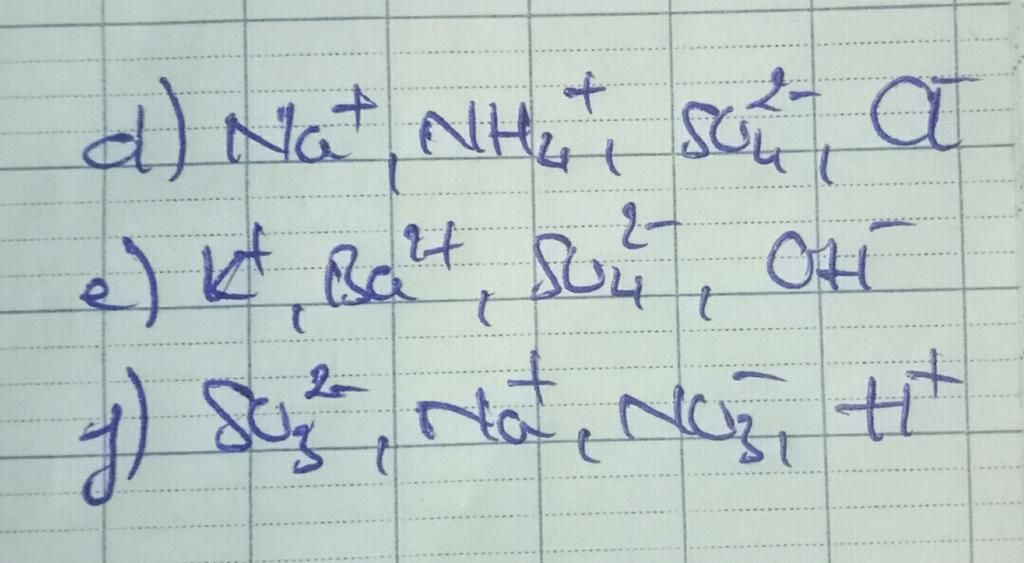 d) Na⁺, NH₄⁺, SO₄²⁻, Cl⁻
e) K⁺, Ba²⁺, SO₄²⁻, OH⁻
f) SO₃²⁻, Na⁺, NO₃⁻, H⁺